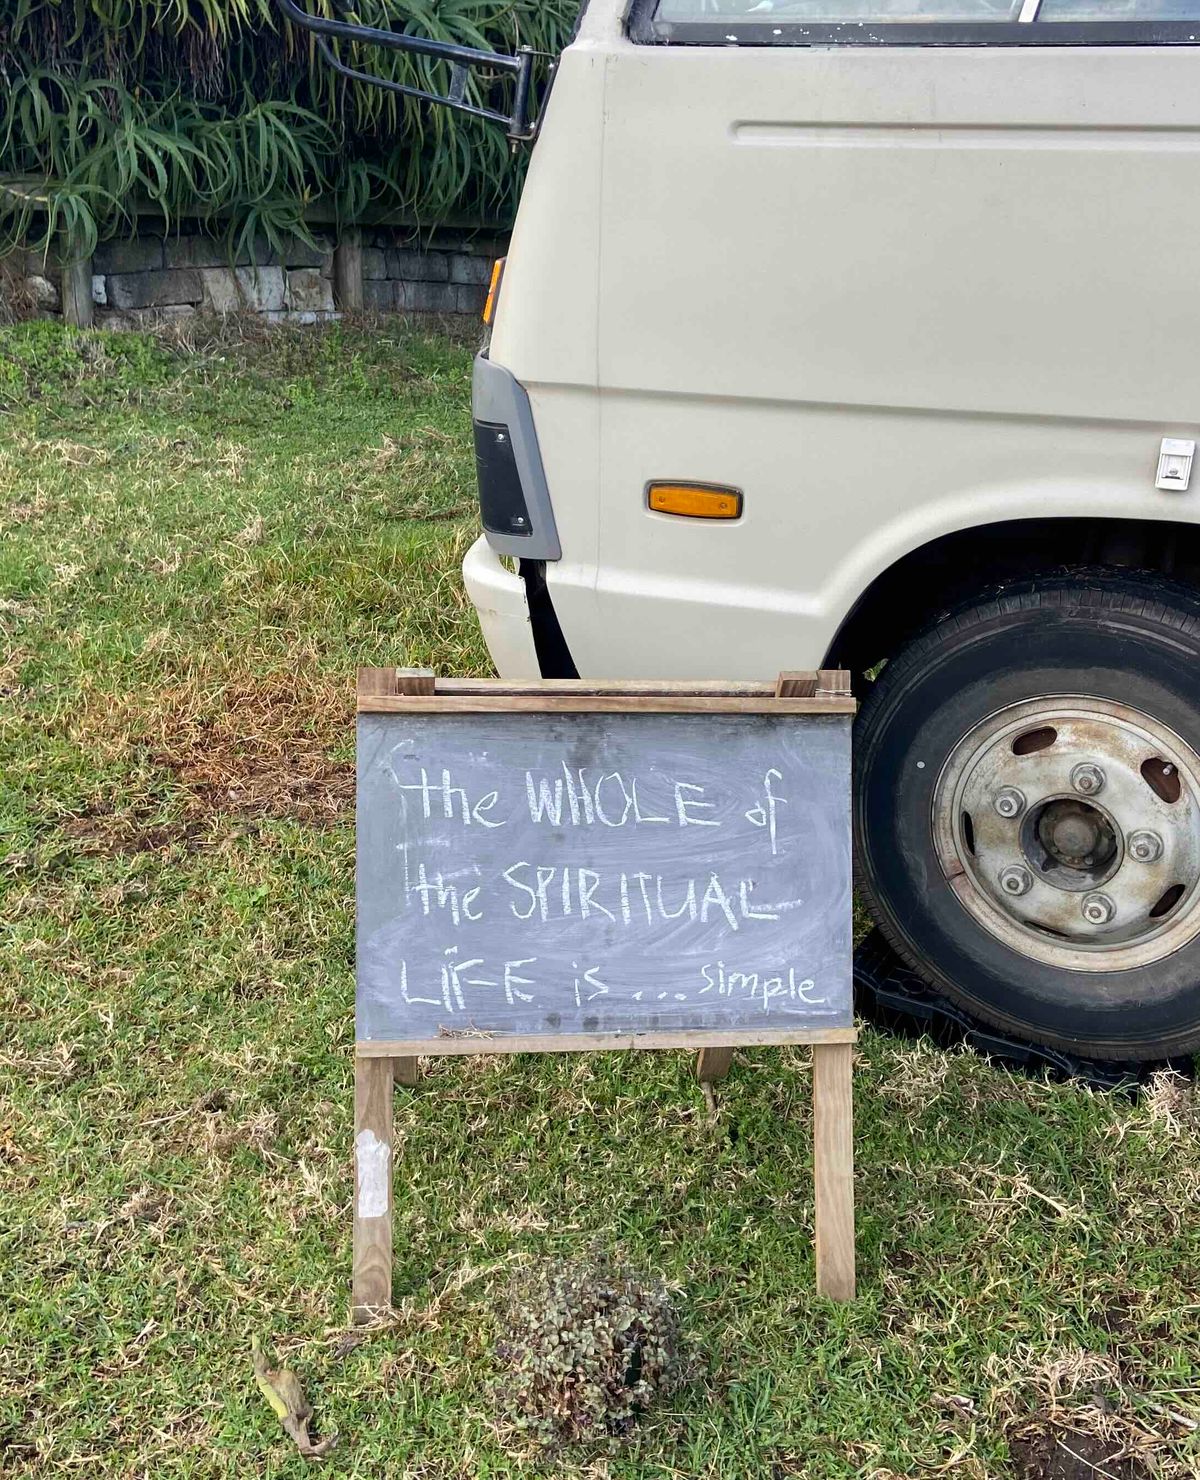 the WHOLE of
the SPIRITUAL
LIFE is ... simple